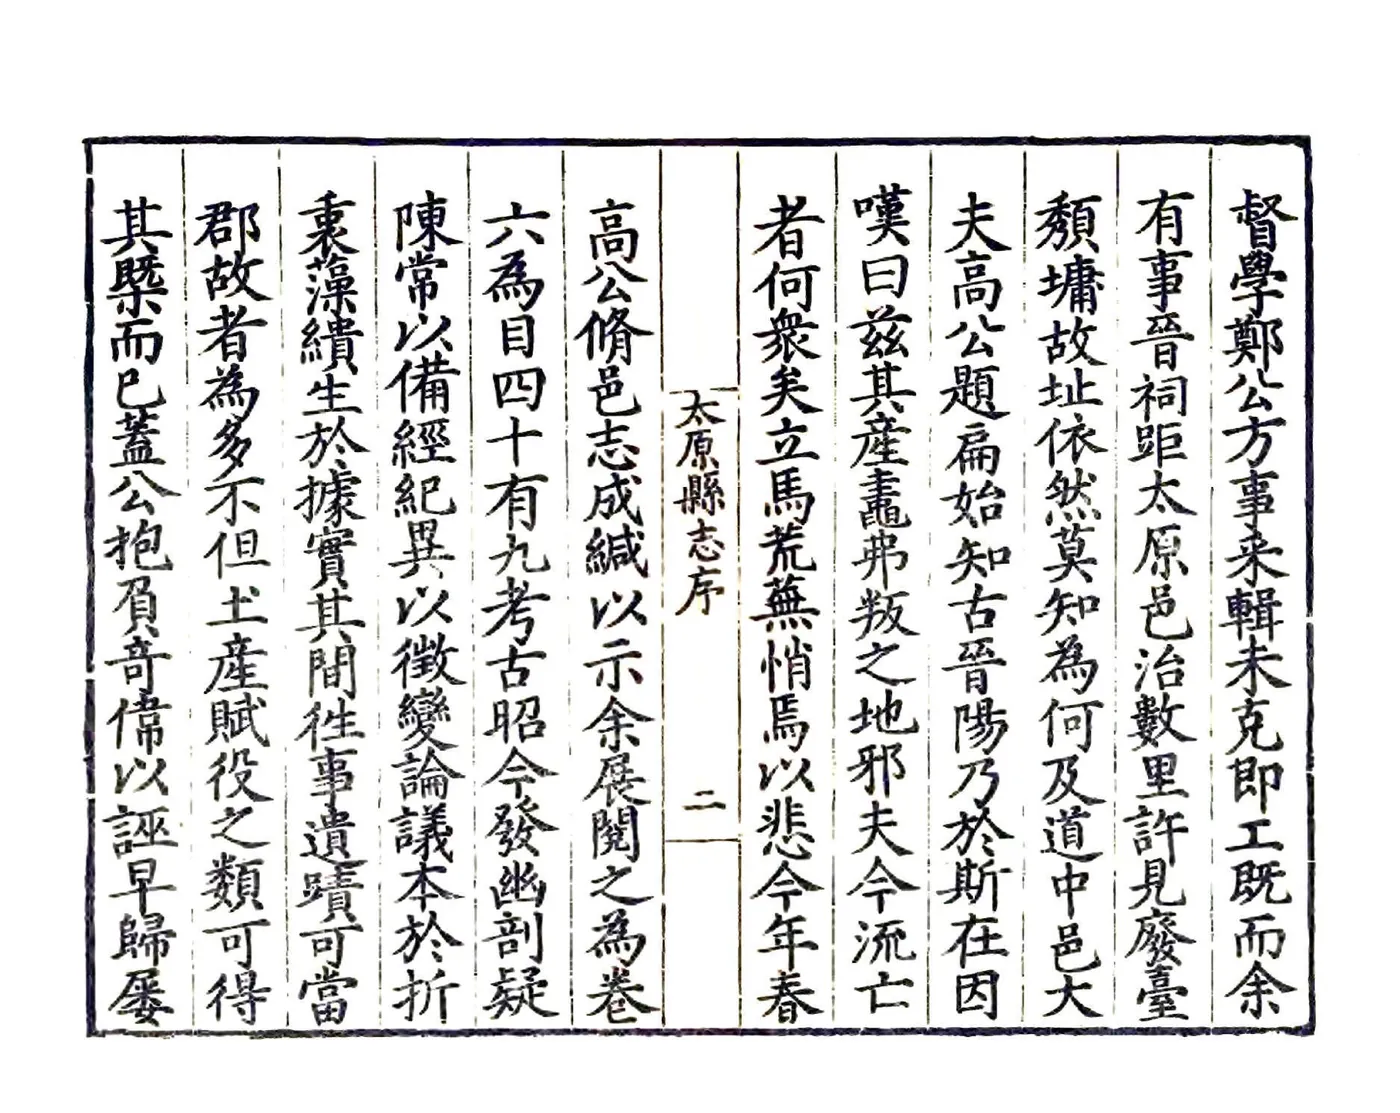 督學鄭公方事来輯未克即工既而余
有事晉祠距太原邑治數里許見廢臺
頽墉故址依然莫知為何及道中邑大
夫高公題扁始知古晉陽乃於斯在因
嘆曰兹其產鼃弗叛之地邪夫今流亡
者何衆矣立馬荒蕪悄焉以悲今年春
太原縣志序
二
高公脩邑志成緘以示余展閱之為卷
六為目四十有九考古昭今發幽剖疑
陳常以備經紀異以徵變論議本於折
衷藻繢生於據實其間徃事遺蹟可當
郡故者為多不但土產賦役之類可得
其槩而已蓋公抱負竒偉以誣早歸屡